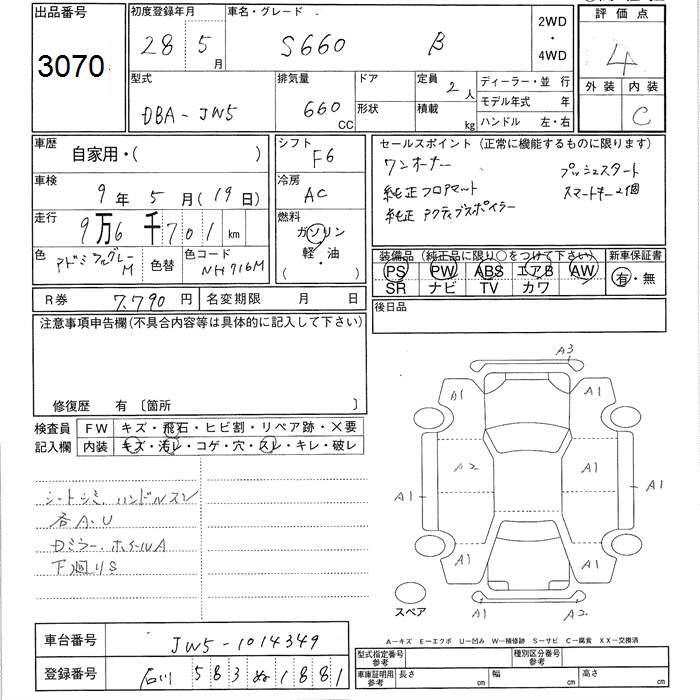 出品番号
3070
初度登録年月
28 5月
車名・グレード
S660 β
2WD
・
4WD
評価点
4
外装 内装
C
型式
DBA-JW5
排気量
660 CC
ドア
形状
定員
2人
積載
kg
ディーラー・並 行
モデル年式 年
ハンドル 左・右
車歴
自家用・( )
シフト
F6
セールスポイント (正常に機能するものに限ります)
ワンオーナー
プッシュスタート
純正フロアマット
スマートキー2個
純正 アクティブスポイラー
車検
9年 5月(19日)
冷房
AC
走行
9万6千701km
燃料
ガソリン
・
軽・油
( )
色
M
色替
色コード
NH716M
装備品 (純正品に限り○をつけて下さい)
PS PW ABS エアB AW
SR ナビ TV カワ
新車保証書
有・無
R券 7,790円
名変期限 月 日
後日品
注意事項申告欄(不具合内容等は具体的に記入して下さい)
修復歴 有 〔箇所
検査員
記入欄
FW キズ・飛石・ヒビ割・リペア跡・×要
内装 キズ・汚レ・コゲ・穴・スレ・キレ・破レ
シートシミ、ハンドルスレ
各A.U
Dミラー.ホイールA
下廻りS
A3
A1 A1
A2 A1
A1 A1
A1 A1
A1 A2
スペア
A-キズ E-エクボ U-凹み W-補修跡 S-サビ C-腐食 XX-交換済
車台番号
JW5-1014349
登録番号
石川 583 ぬ 1881
型式指定番号
参考
種別区分番号
参考
車庫証明用
参考
長さ cm
幅 cm
高さ cm